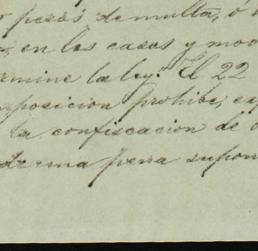 pesos de multa, ó
en los casos y mo
ermine la ley. El 22
mposicion prohibe, ex
la confiscacion de
de una pena supon